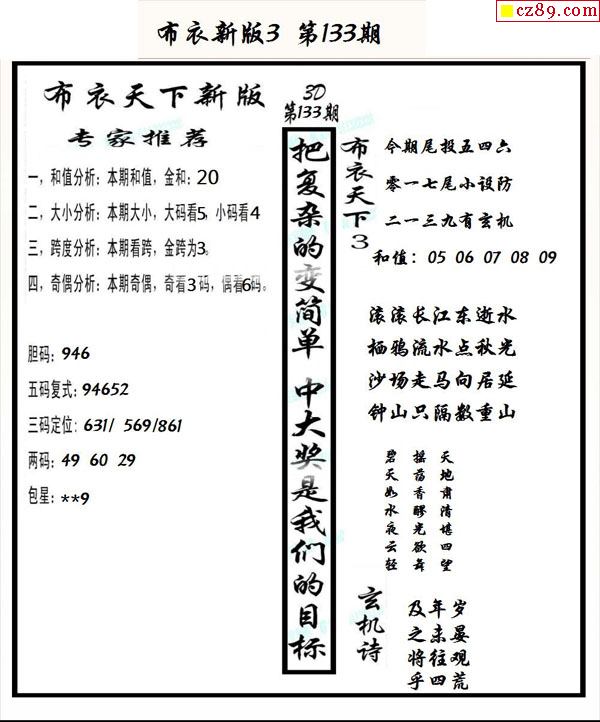 cz89.com
布衣新版3 第133期
布衣天下新版
专家推荐
一，和值分析：本期和值，金和：20
二，大小分析：本期大小，大码看5，小码看4
三，跨度分析：本期看跨，金跨为3。
四，奇偶分析：本期奇偶，奇看3码，偶看6码。
胆码：946
五码复式：94652
三码定位：631/ 569/861
两码：49 60 29
包星：**9
3D
第133期
把复杂的变简单 中大奖是我们的目标
布衣天下3
今期尾投五四六
零一七尾小设防
二一三九有玄机
和值：05 06 07 08 09
滚滚长江东逝水
栖鸦流水点秋光
沙场走马向居延
钟山只隔数重山
天地肃清堪四望
摇荡香醪光欲舞
碧天如水夜云轻
玄机诗
岁晏观荒
年未往四
及之将乎